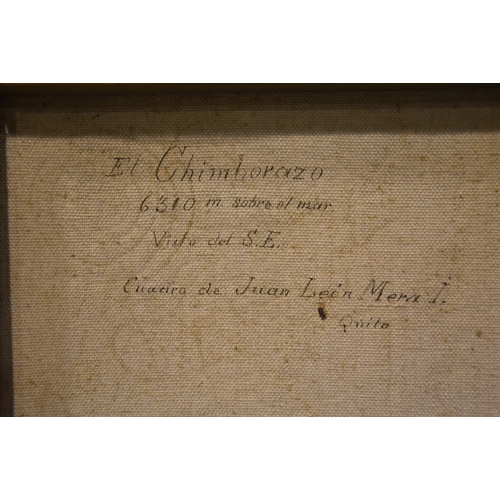 El Chimborazo
6310 m. sobre el mar
Visto del S.E.
Cuadro de Juan León Mera I.
Quito